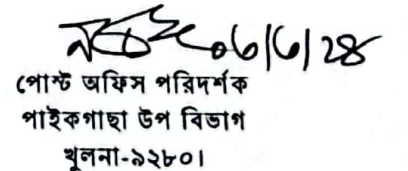 ০৬/৬/২৪
পোস্ট অফিস পরিদর্শক
পাইকগাছা উপ বিভাগ
খুলনা-৯২৮০।